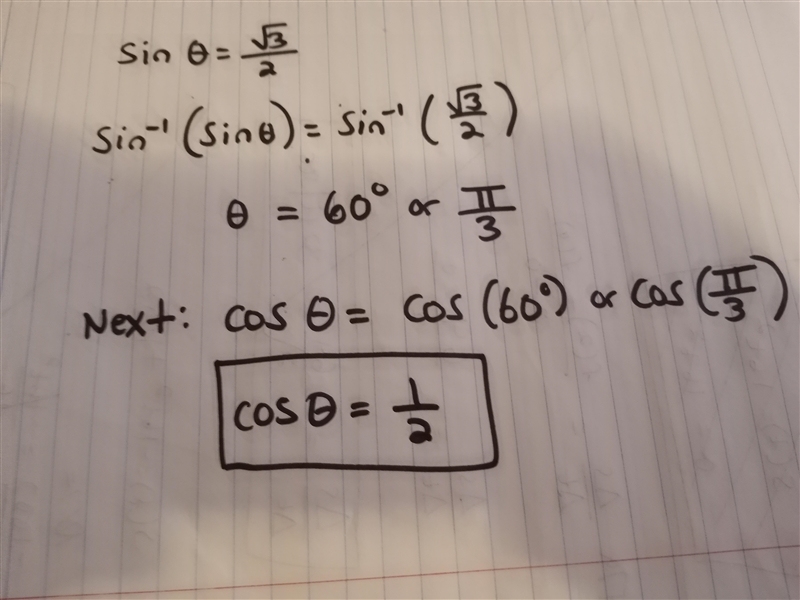 sin θ = √3/2
sin⁻¹(sin θ) = sin⁻¹(√3/2)
θ = 60° or π/3
Next: cos θ = cos(60°) or cos(π/3)
cos θ = 1/2